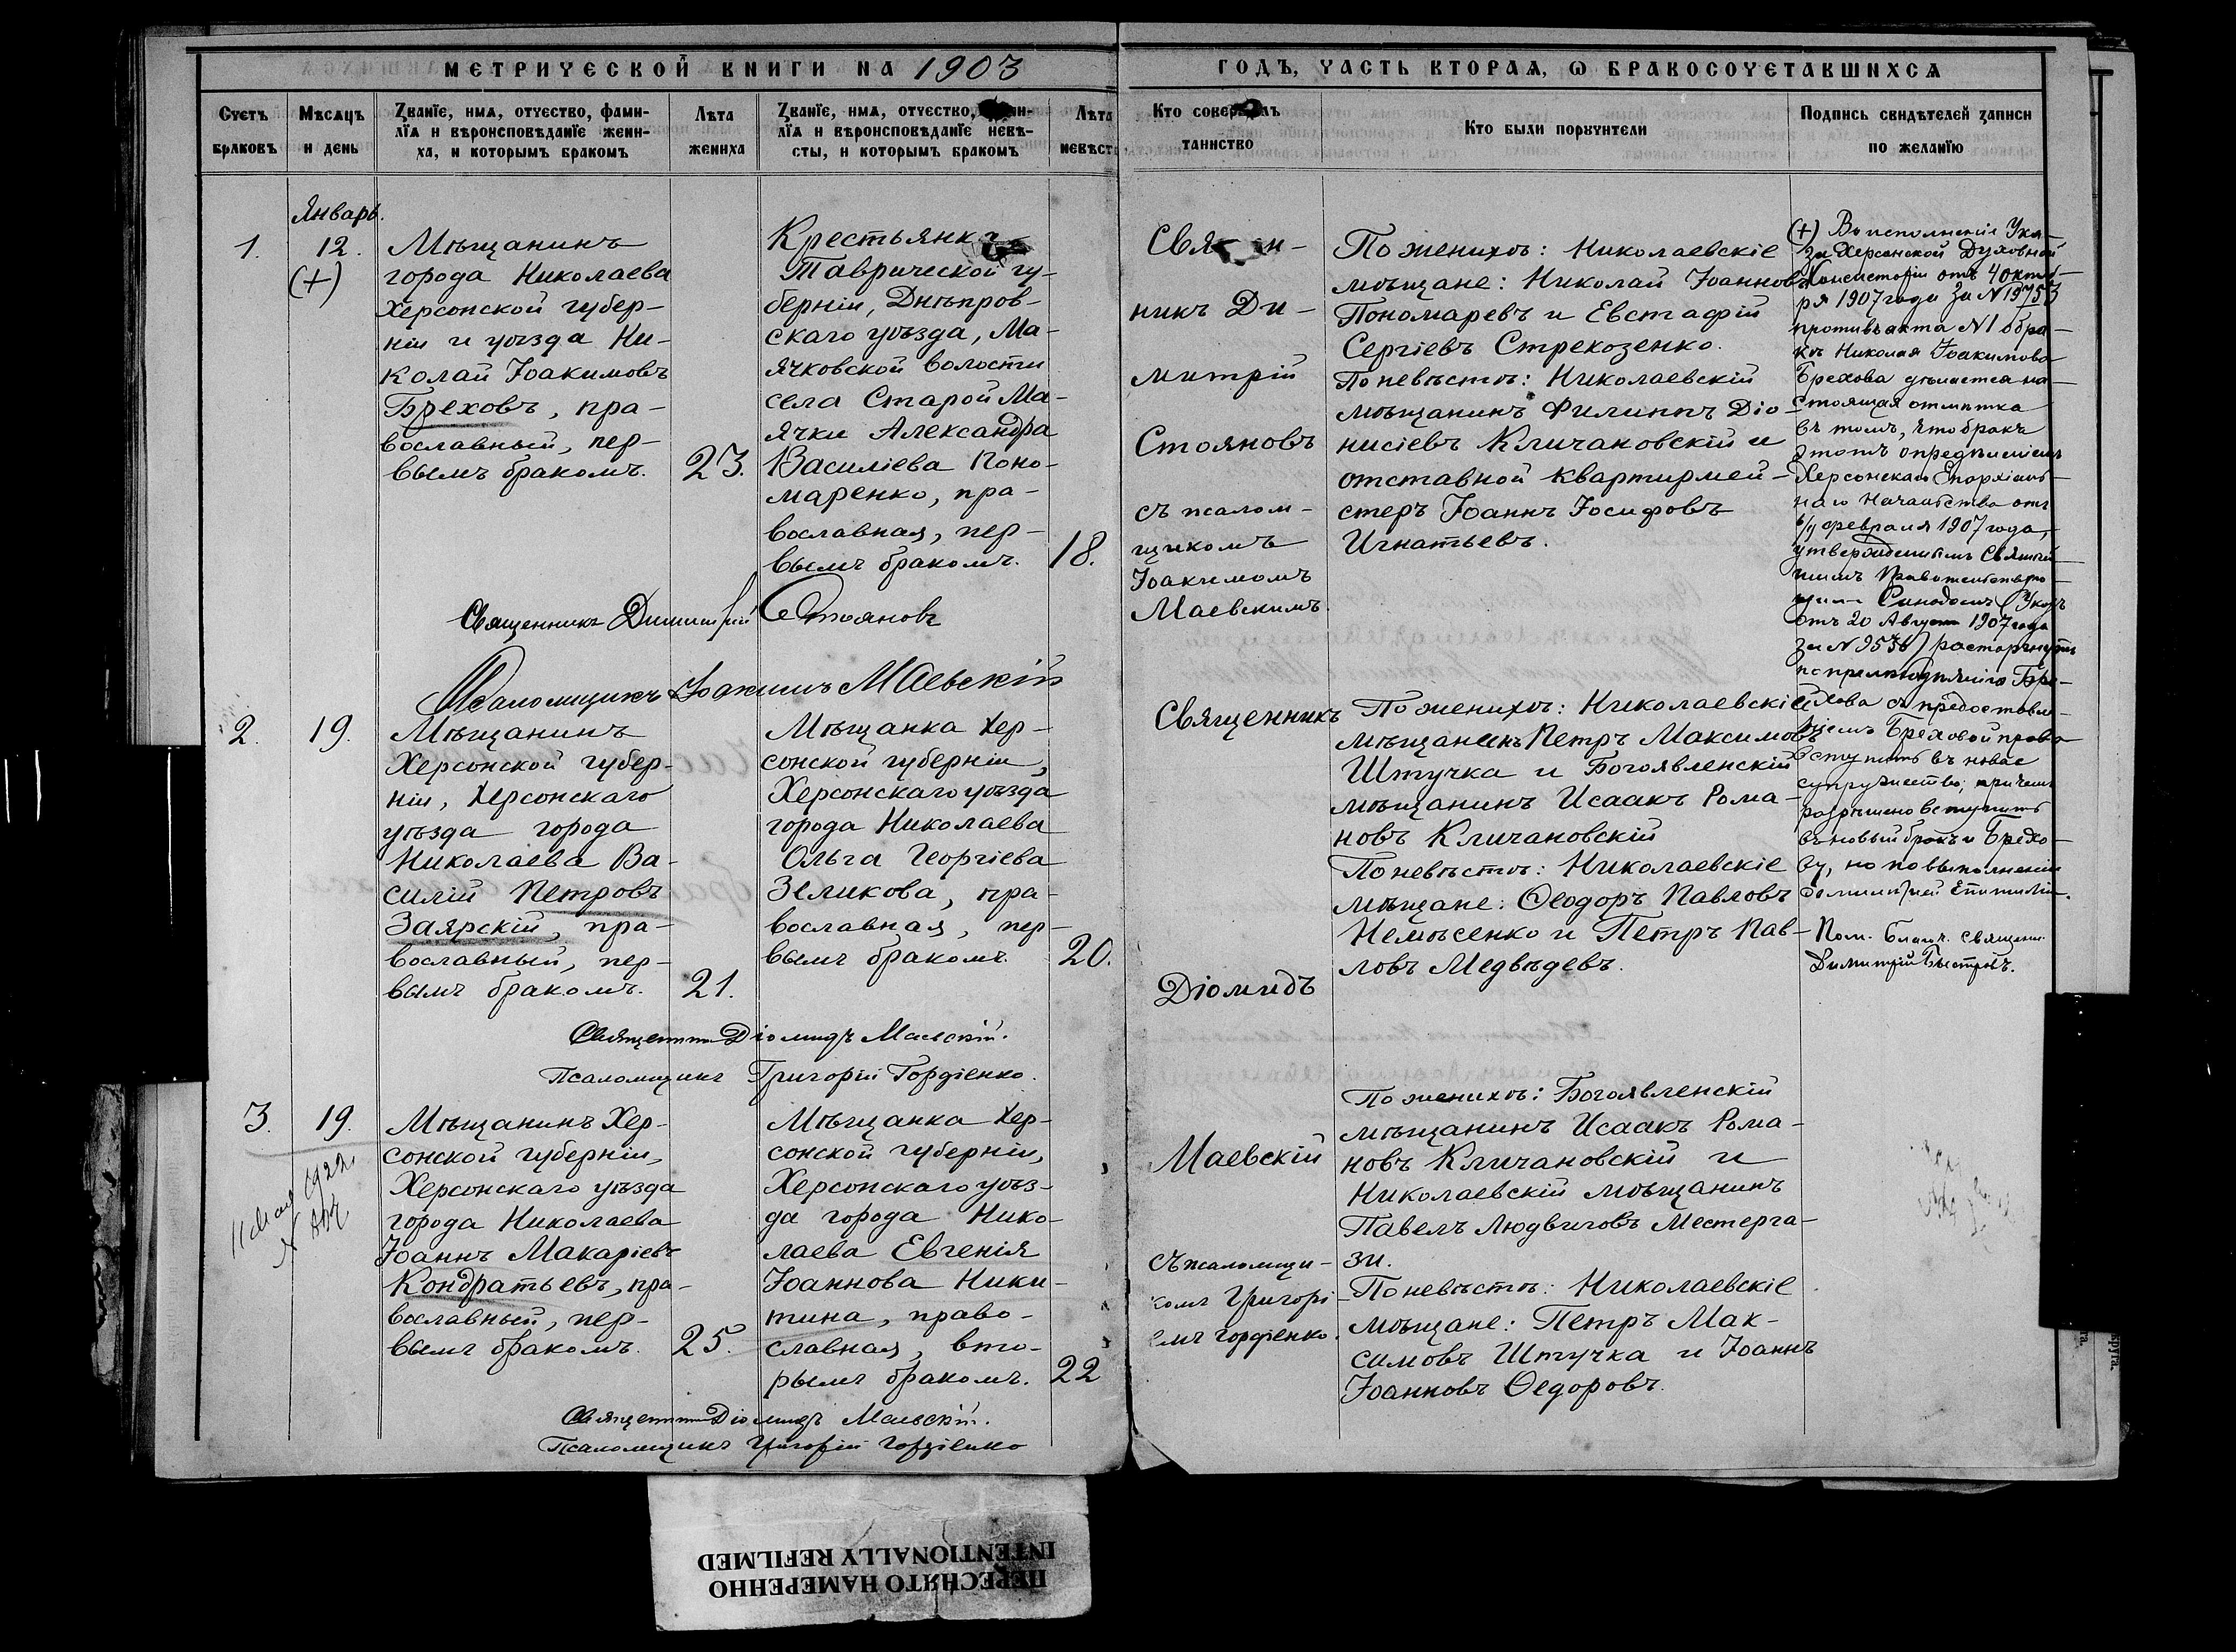 МЕТРИЧЕСКОЙ КНИГИ НА 1903
ГОДЪ, ЧАСТЬ ВТОРАЯ, Ѡ БРАКОСОЧЕТАВШИХСЯ
Счетъ браковъ
Мѣсяцъ и день
Званїе, имя, отчество, фами-
лїя и вѣроисповѣданїе жени-
ха, и которымъ бракомъ
Лѣта жениха
Званїе, имя, отчество,
лїя и вѣроисповѣданїе невѣ-
сты, и которымъ бракомъ
Лѣта
Кто
таинство
Кто были поручители
Подпись свидѣтелей записи
по желанїю
Январь.
1.
12.
(+)
Мѣщанинъ
города Николаева
Херсонской губер-
ніи и уѣзда Ни-
колай Іоакимовъ
Бреховъ, пра-
вославный, пер-
вымъ бракомъ.
23.
Крестьянка
Таврической гу-
берніи, Днѣпров-
скаго уѣзда, Ма-
ячковской волости
села Старой Ма-
ячки Александра
Василіева Поно-
маренко, пра-
вославная, пер-
вымъ бракомъ.
18.
Свя
никъ Ди-
митрій
Стояновъ
съ псалом-
щикомъ
Іоакимомъ
Маевскимъ.
По женихѣ: Николаевскіе
мѣщане: Николай Іоанновъ
Пономаревъ и Евстафій
Сергіевъ Стрекозенко.
По невѣстѣ: Николаевскій
мѣщанинъ Филиппъ Діо-
нисіевъ Кличановскій и
отставной квартирмей-
стеръ Іоаннъ Іосифовъ
Игнатьевъ.
(+) Во исполненіе Ука-
за Херсонской Духовной
Консисторіи отъ 4 октяб-
ря 1907 года за № 19753
противъ акта № 1 о бра-
кѣ Николая Іоакимова
Брехова дѣлается на-
стоящая отмѣтка
въ томъ, что бракъ
этотъ опредѣленіемъ
Херсонскаго Епархіаль-
наго Начальства отъ
февраля 1907 года,
утвержденнымъ Святѣй-
шимъ Правительствую-
щимъ Синодомъ (Указъ
отъ 20 Августа 1907 года
за №) расторгнутъ
по прелюбодѣянію Бре-
хова съ предоставле-
ніемъ Бреховой права
вступить въ новое
супружество; причемъ
разрѣшено вступить
въ новый бракъ и Брехо-
ву, но по выполненіи
Епитиміи.
Пом. Благч. священн.
Димитрій Быстровъ.
Священникъ Димитрій Стояновъ
Псаломщикъ Іоакимъ Маевскій
2.
19.
Мѣщанинъ
Херсонской губер-
ніи, Херсонскаго
уѣзда города
Николаева Ва-
силій Петровъ
Заярскій, пра-
вославный, пер-
вымъ бракомъ.
21.
Мѣщанка Хер-
сонской губерніи,
Херсонскаго уѣзда
города Николаева
Ольга Георгіева
Зеликова, пра-
вославная, пер-
вымъ бракомъ.
20.
Священникъ
Діомидъ
По женихѣ: Николаевскій
мѣщанинъ Петръ Максимовъ
Штучка и Богоявленскій
мѣщанинъ Исаакъ Рома-
новъ Кличановскій
По невѣстѣ: Николаевскіе
мѣщане: Ѳеодоръ Павловъ
Немѣсенко и Петръ Пав-
ловъ Медвѣдевъ.
Священникъ Діомидъ Маевскій.
Псаломщикъ Григорій Гордіенко.
3.
19.
11 мая 1922
Мѣщанинъ Хер-
сонской губерніи,
Херсонскаго уѣзда
города Николаева
Іоаннъ Макаріевъ
Кондратьевъ, пра-
вославный, пер-
вымъ бракомъ.
25.
Мѣщанка Хер-
сонской губерніи,
Херсонскаго уѣз-
да города Нико-
лаева Евгенія
Іоаннова Ники-
тина, право-
славная, вто-
рымъ бракомъ.
22
Маевскій
съ псаломщи-
комъ Григорі-
емъ Гордіенко.
По женихѣ: Богоявленскій
мѣщанинъ Исаакъ Рома-
новъ Кличановскій и
Николаевскій мѣщанинъ
Павелъ Людвиговъ Местерга-
зи.
По невѣстѣ: Николаевскіе
мѣщане: Петръ Мак-
симовъ Штучка и Іоаннъ
Іоанновъ Ѳедоровъ.
Священникъ Діомидъ Маевскій.
Псаломщикъ Григорій Гордіенко
ПЕРЕСНЯТО НАМЕРЕННО
INTENTIONALLY REFILMED